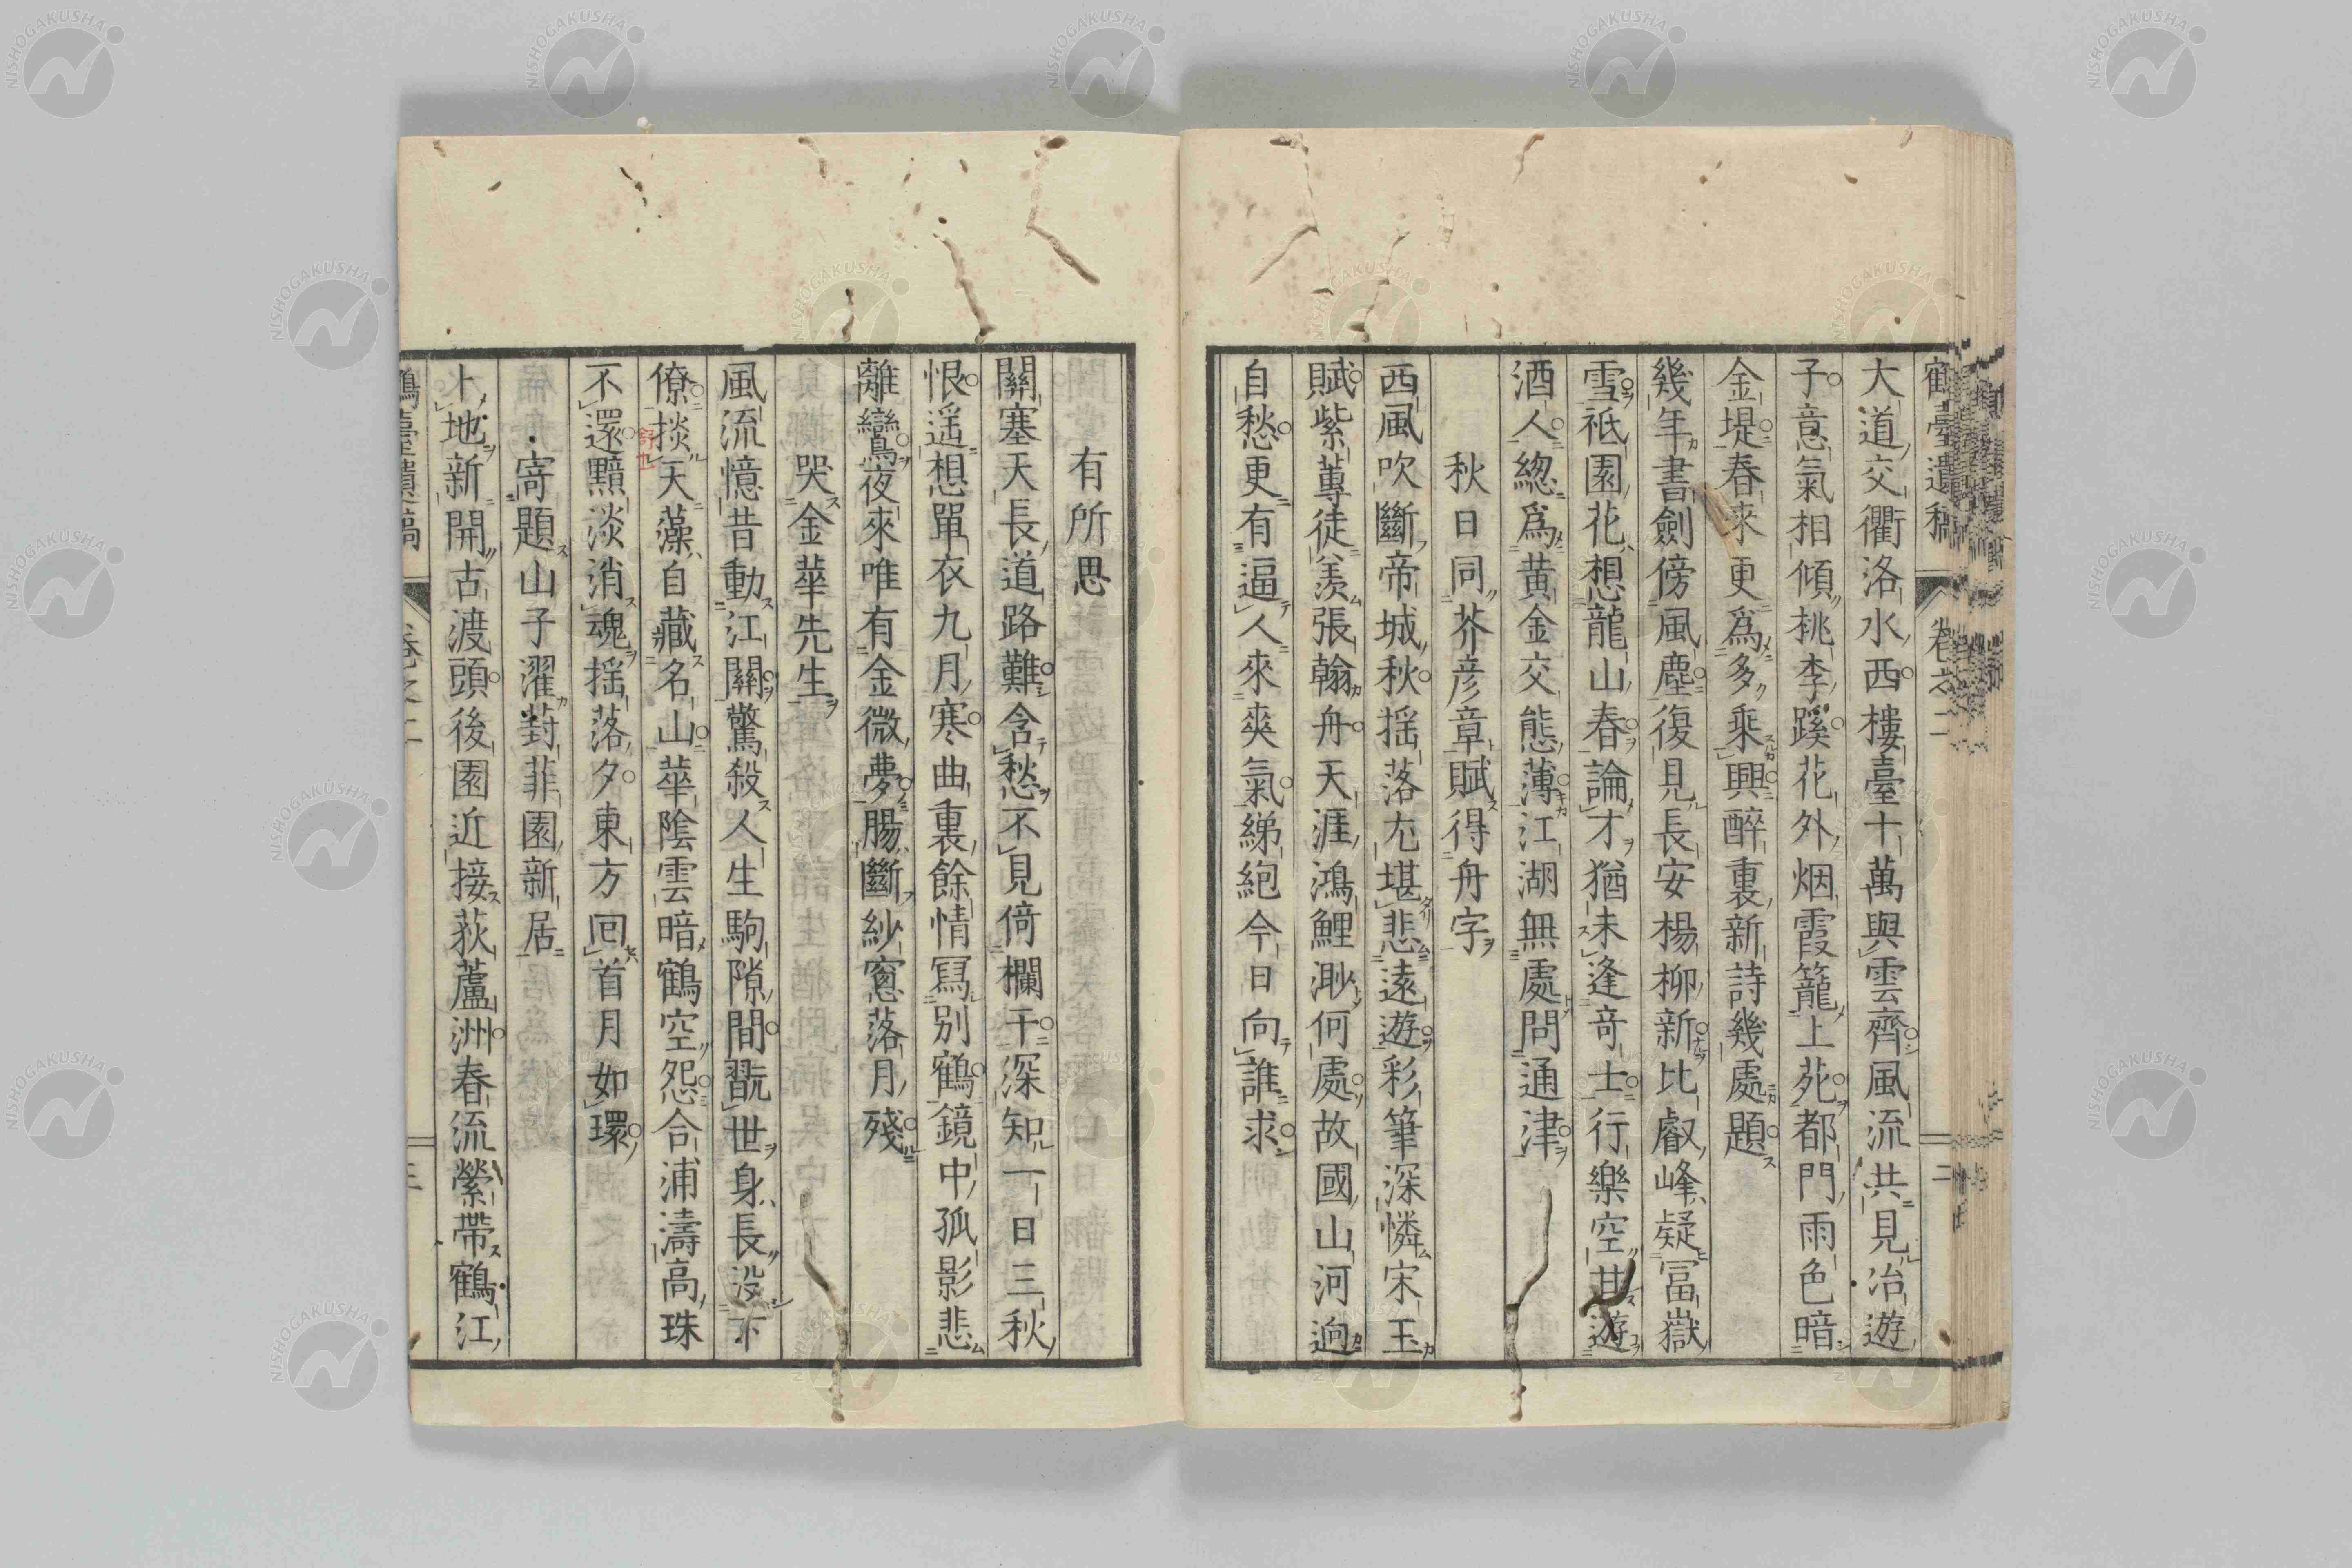 鶴臺遺稿 卷之二 二
大道交衢洛水西樓臺十萬與雲齊風流共見冶遊
子意氣相傾桃李蹊花外烟霞籠上苑都門雨色暗
金堤春來更爲多乘興醉裏新詩幾處題
幾年書劍傍風塵復見長安楊柳新比叡峰疑冨嶽
雪祇園花想龍山春論才猶未逢竒士行樂空甘遊
酒人緫爲黄金交態薄江湖無處問通津
秋日同芥彦章賦得舟字
西風吹斷帝城秋揺落尢堪悲遠遊彩筆深憐宋玉
賦紫蓴徒羨張翰舟天涯鴻鯉渺何處故國山河逈
自愁更有逼人來爽氣綈絁今日向誰求
有所思
關塞天長道路難含愁不見倚欄干深知一日三秋
恨遥想單衣九月寒曲裏餘情冩别鶴鏡中孤影悲
離鸞夜來唯有金微夢腸斷紗窓落月殘
哭金華先生
風流憶昔動江關驚殺人生駒隙間翫世身長没下
僚掞天藻自藏名山華陰雲暗鶴空怨合浦濤高珠
不還黯淡消魂揺落夕東方回首月如環
寄題山子濯對菲園新居
卜地新開古渡頭後園近接荻蘆洲春流縈帶鶴江
鶴臺遺稿 卷之二 三
NISHOGAKUSHA